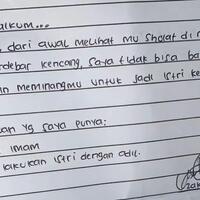 alkum...
dari awal melihat mu sholat di m
rdebar kencang, saya tidak bisa ba
n meminangmu untuk jadi istri ke
kan yg saya punya:
imam
lakukan istri dengan adil.
zak